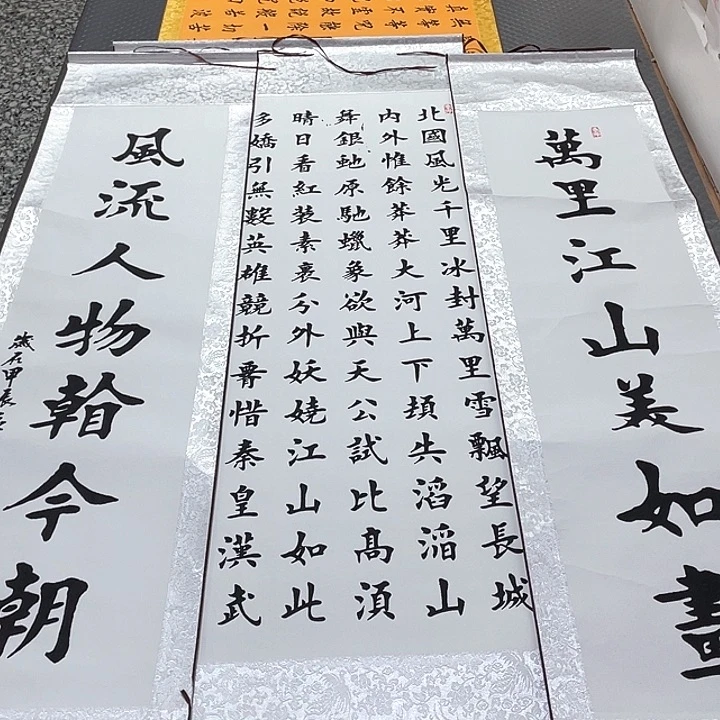 萬里江山美如畫
北國風光千里冰封萬里雪飄望長城
内外惟餘莽莽大河上下頓失滔滔山
舞銀蛇原馳蠟象欲與天公試比高須
晴日看紅裝素裹分外妖嬈江山如此
多嬌引無數英雄競折要惜秦皇漢武
風流人物看今朝
歲在甲辰